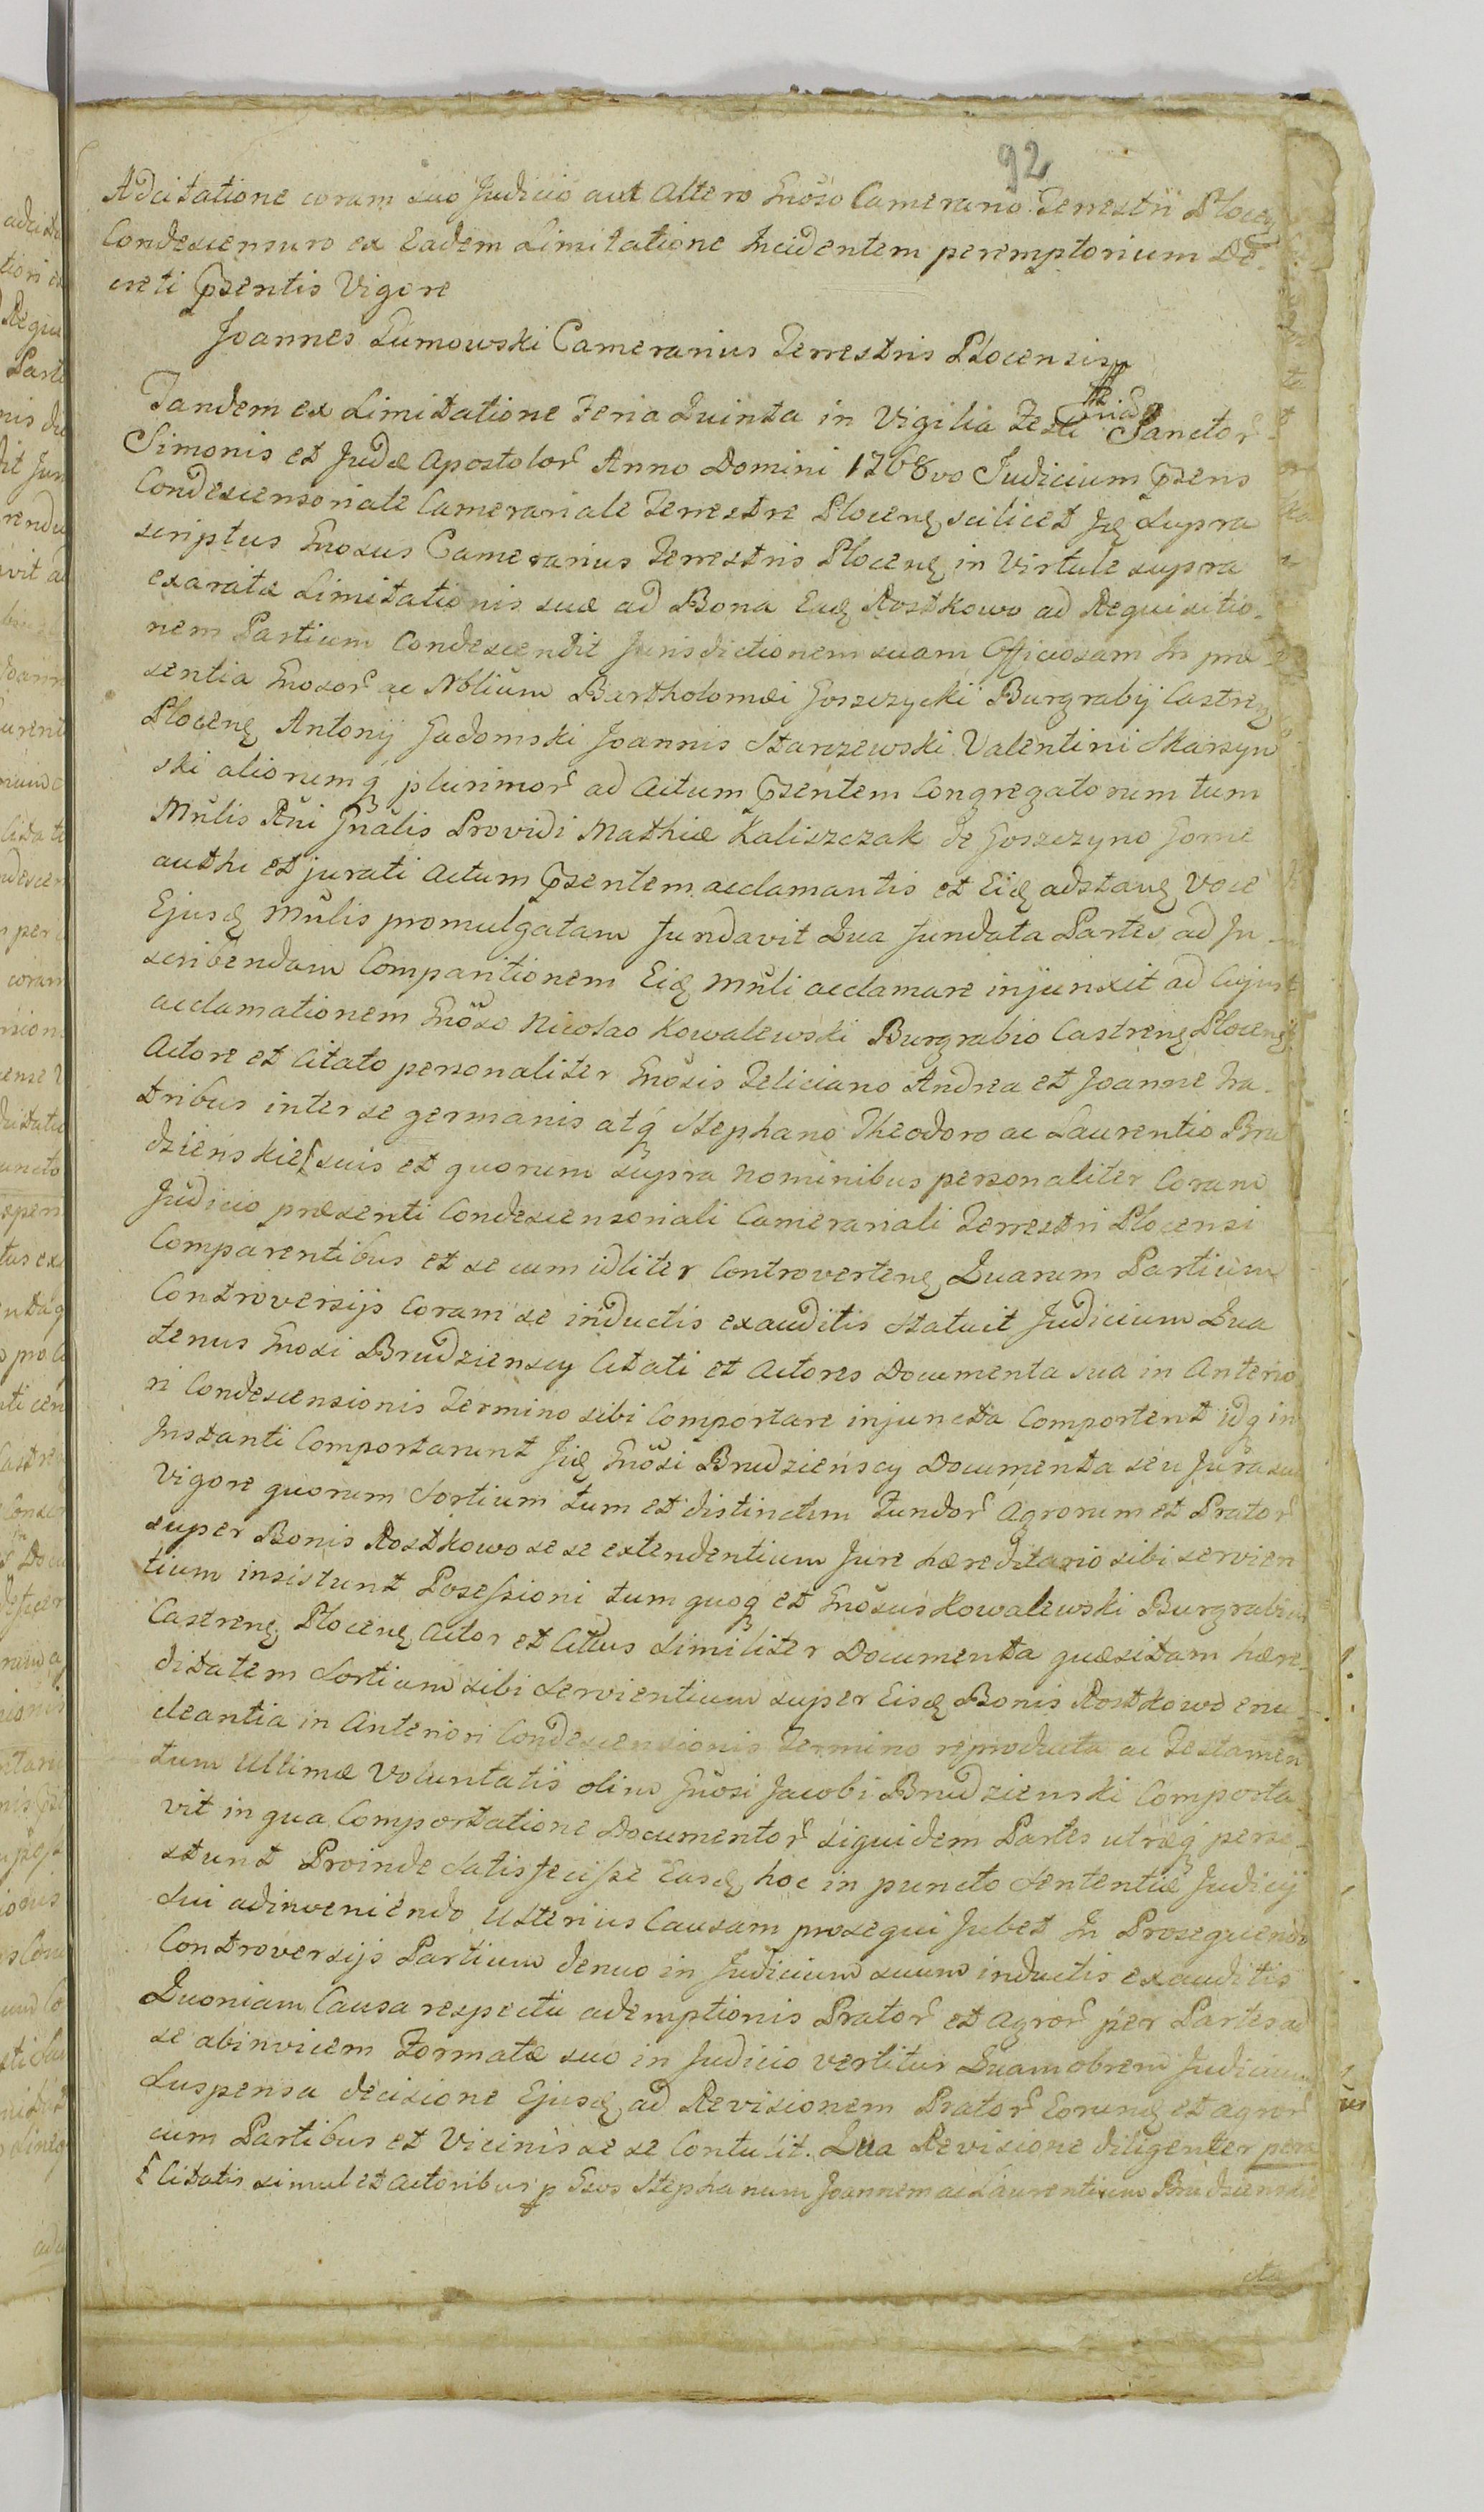 92
Adcitatione coram suo Judicio aut altero Gnoso Camerario Terrestri Plocen
Condescensuro ex Eadem Limitatione Incidentem peremptorium De-
creti Pr̃sentis Vigore
Joannes Dumowski Camerarius Terrestris Plocensis
Tandem ex Limitatione Feria Quinta in Vigilia Festi Sanctor̃
Simonis et Judæ Apostolor̃ Anno Domini 1768vo Judicium Pr̃sens
Condescensoriale Camerariale Terrestre Plocenẽ scilicet Jdẽ Supra
scriptus Gnosus Camerarius Terrestris Plocenẽ in Virtute supra
exaratæ Limitationis suæ ad Bona Eadẽ Rostkowo ad Requisitio-
nem Partium Condescendit Jurisdictionem suam Officiosam In præ
sentia Gnosor̃ ac Nobilium Bartholomæi Goszczycki Burgrabij Castren̄
Plocenẽ Antonij Gadomski Joannis Starzewski Valentini Skarzyn
ski aliorumq̃ plurimor̃ ad actum Pr̃sentem Congregatorum tum
Mñlis Rñi Gñalis Providi Mathiæ Kaliszczak de Goszczyno Gorne
authi et jurati Actum Pr̃sentem acclamantis et Eidẽ adstanẽ Voce
Ejusdẽ Mñlis promulgatam fundavit Qua fundata Partes ad In-
scribendam Comparitionem Eidẽ Mñli acclamare injunxit ad Cujus
acclamationem Gnõso Nicolao Kowalewski Burgrabio Castrenẽ Plocenẽ
Actore et Citato personaliter Gnõsis Feliciano Andrea et Joanne Fra-
tribus inter se germanis atq̃ Stephano Theodoro ac Laurentio Bru
dzienskie[ suis et quorum supra Nominibus personaliter Coram
Judicio præsenti Condescensoriali Camerariali Terrestri Plocensi
Comparentibus et se cum idliter Controvertenẽ Quarum Partium
Controversijs Coram se inductis exauditis Statuit Judicium Qua
tenus Gnosi Brudzienscy Citati et Actores Documenta sua in Anterio
ri Condescensionis Termino sibi Comportare injuncta Comportent idq̃ in
Instanti Comportarunt Jidẽ Gnõsi Brudzieńscy Documenta seu Jura sua
Vigore quorum Sortium tum et distinctim Fundor̃ Agrorum et Prator̃
super Bonis Rostkowo se se extendentium Jure hæreditario sibi servien
tium insistunt Posessioni tum quoq̃ et Gnõsus Kowalewski Burgrabius
Castrenẽ Plocenẽ Actor et Cittus Similiter Documenta quæsitam hære-
ditatem Sortium sibi Servientium super Eisdẽ Bonis Rostkowo enu-
cleantia in Anteriori Condescensionis Termino reproducta ac Testamen
tum Ultimæ Voluntatis olim Gnosi Jacobi Brudzienski Comporta
vit in qua Comportatione Documentor̃ siquidem Partes utræq̃ persi-
stunt Proinde Satisfecisse Easdẽ hoc in puncto Sententiæ Judicij
Sui adinveniendo Ulterius Causam prosequi Jubet In Prosequendo
Controversijs Partium denuo in Judicium suum inductis exauditis
Quoniam Causa respectu ademptionis Prator̃ et Agror̃ per Partes ad
se abinvicem Formatæ suo in Judicio vertitur Quamobrem Judicium
Suspensa decisione Ejusdẽ ad Revisionem Prator̃ Eorundẽ et agror̃
cum Partibus et Vicinis se se Contulit. Qua Revisione diligenter pera
[ Citatis simul et Actoribus p Gsos Stephanum Joannem ac Laurentium Brudzienskie
cta